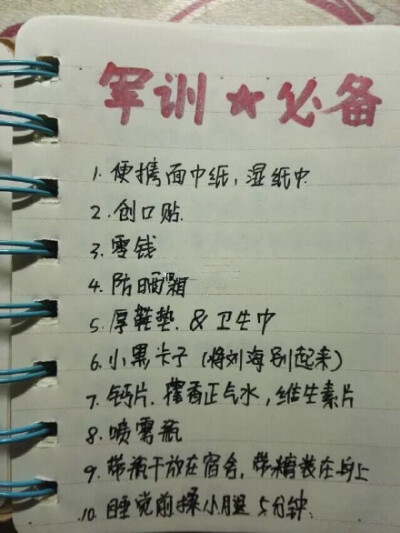 军训★必备
1. 便携面巾纸，湿纸巾
2. 创口贴
3. 零钱
4. 防晒霜
5. 厚鞋垫 & 卫生巾
6. 小黑卡子（将刘海别起来）
7. 钙片，藿香正气水，维生素片
8. 喷雾瓶
9. 带饼干放在宿舍，带糖装在身上
10. 睡觉前揉小腿 5分钟.